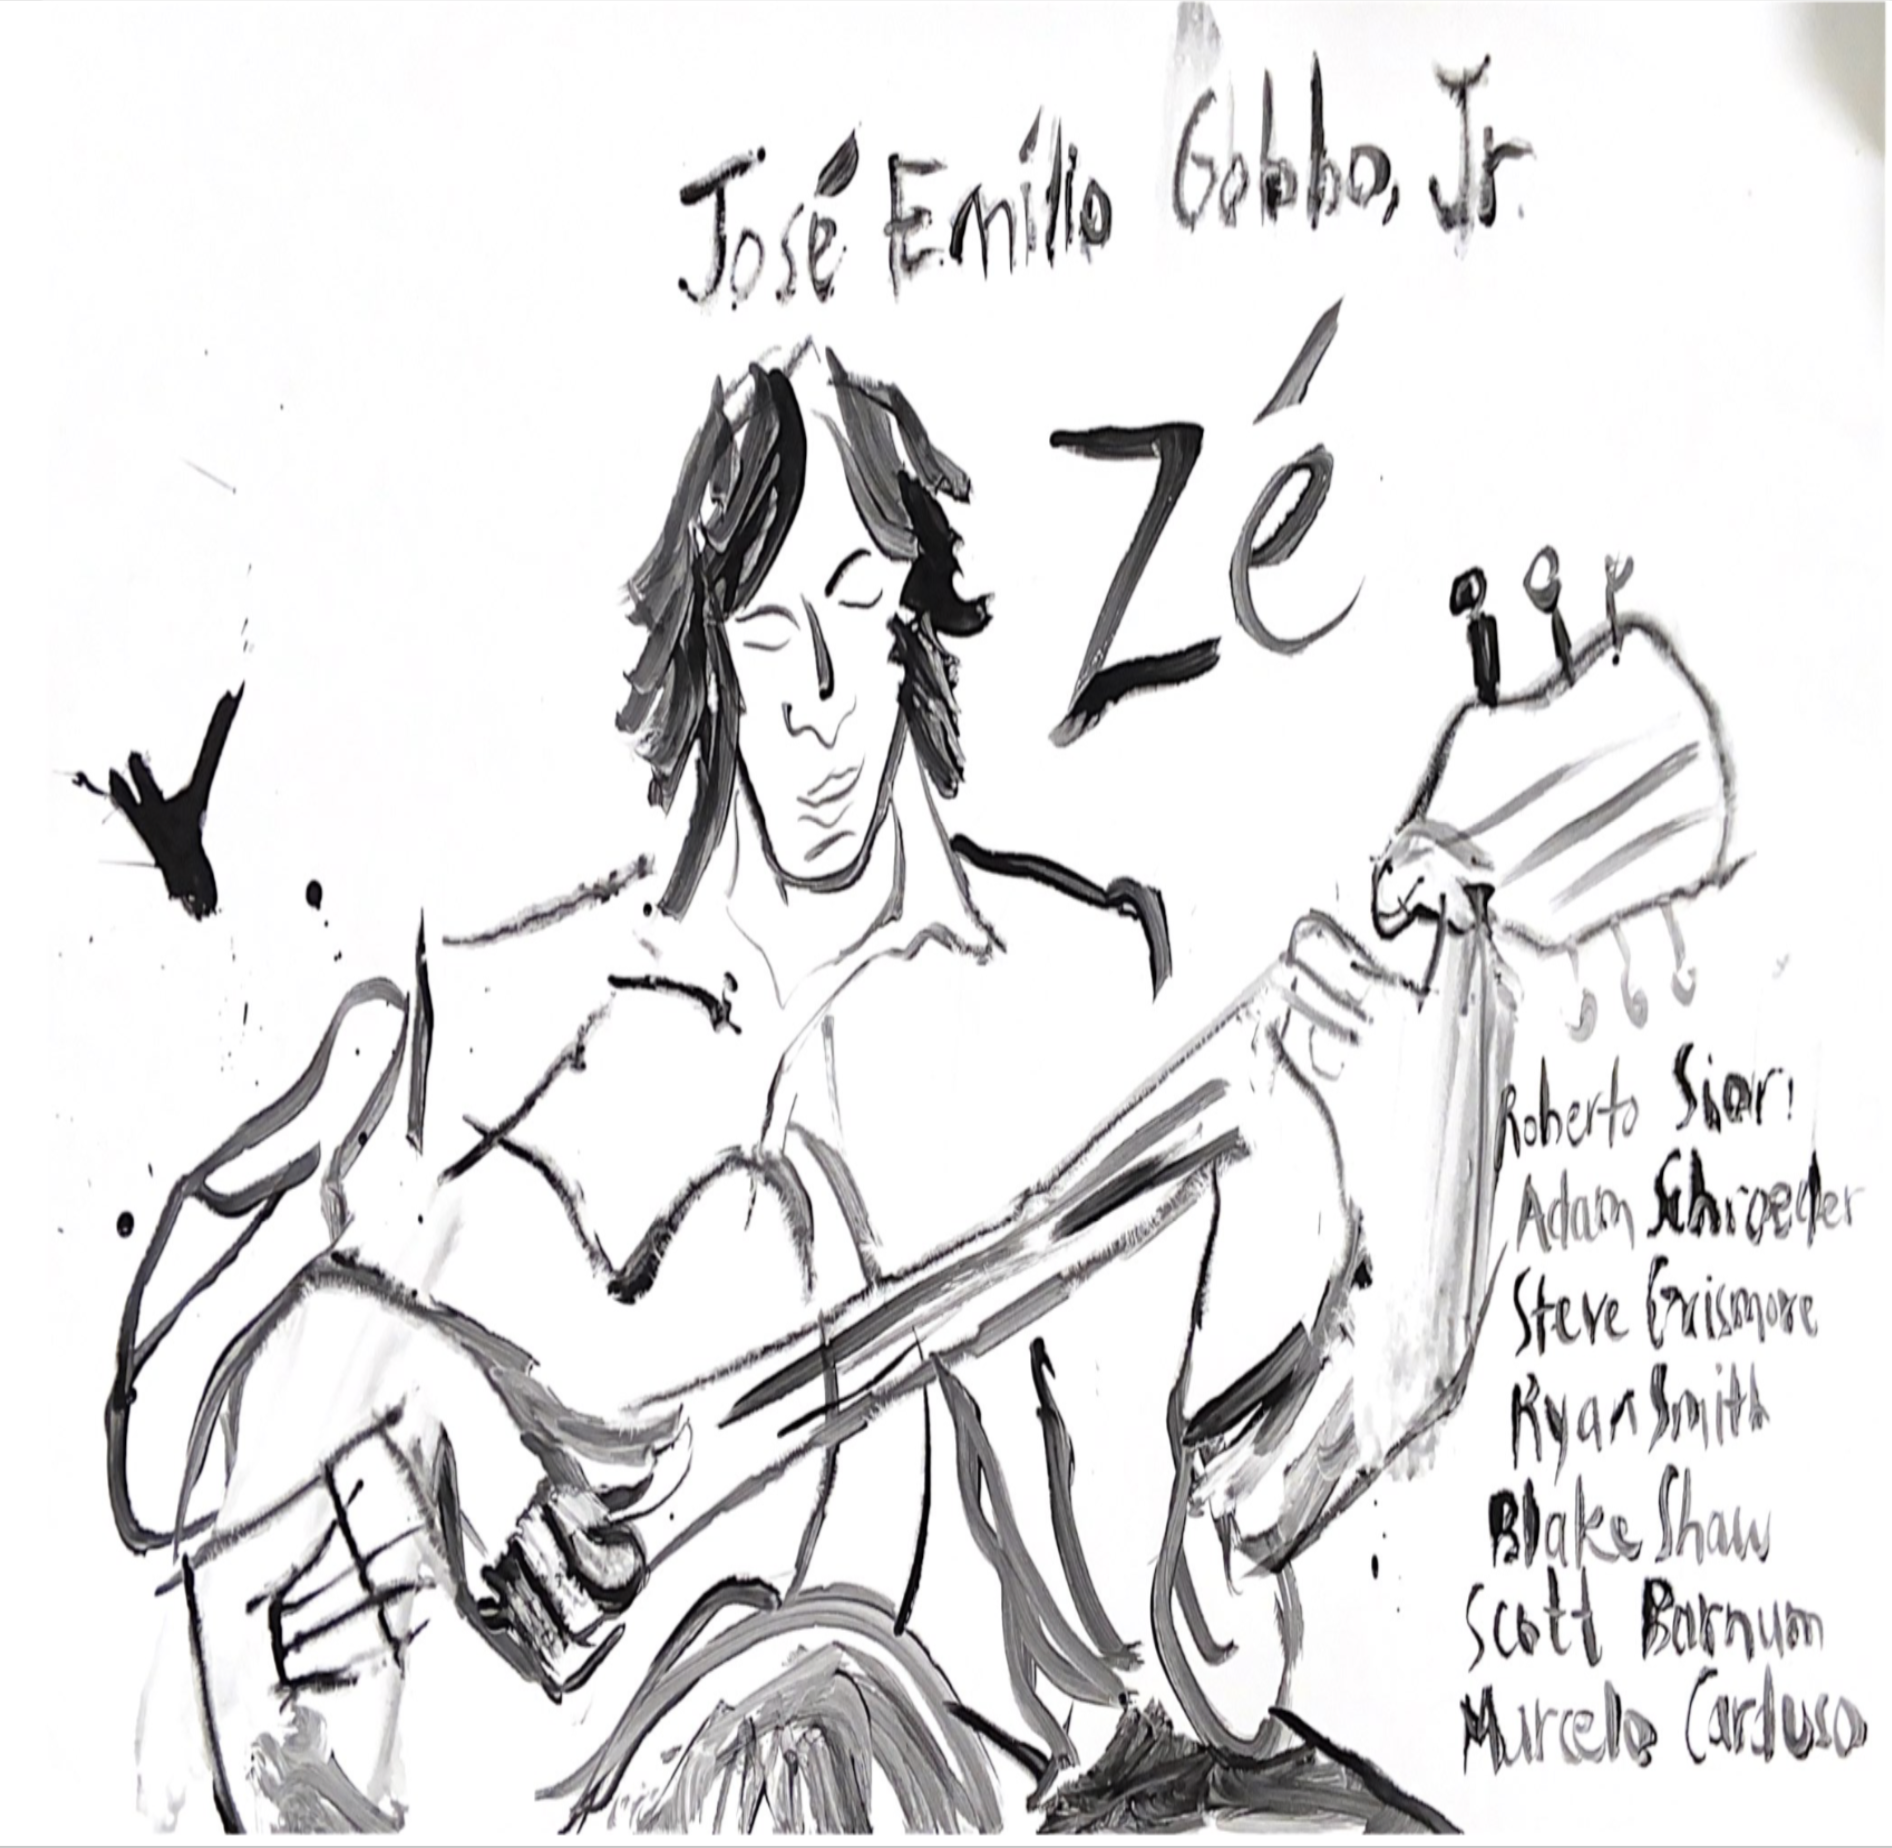 José Emílio Gobbo, Jr.
Zé
Roberto Sior!
Adam Schroeder
Steve Grismore
Ryan Smith
Blake Shaw
Scott Barnum
Marcelo Carduso